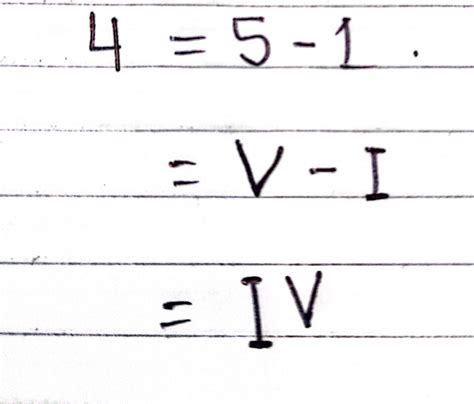 4 = 5 - 1 .
= V - I
= IV